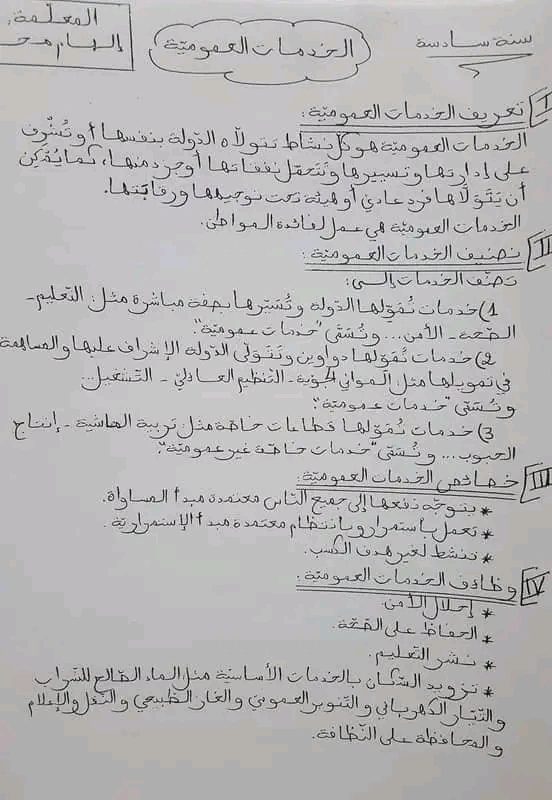 المعلمة
إلهام محـ
سنة سادسة
الخدمات العموميّة
I تعريف الخدمات العموميّة:
الخدمات العموميّة هو كلّ نشاط تتولاّه الدّولة بنفسها أو تُشْرف
على إدارتها وتسييرها وتتحمّل نفقاتها أو جزء منها، كما يُمْكِن
أن يَتَوَلاَّها فرد عاديّ أو هيئة تحت توجيهها ورقابتها.
الخدمات العموميّة هي عمل لفائدة المواطن.
II تصنيف الخدمات العموميّة:
تصنّف الخدمات إلى:
1) خدمات تُمَوّلها الدّولة وتُسَيّرها بصفة مباشرة مثل: التّعليم -
الصّحّة - الأمن... وتُسَمّى "خدمات عموميّة".
2) خدمات تُمَوّلها دواوين وتَتَولّى الدّولة الإشراف عليها والمساهمة
في تمويلها مثل الموانئ الجويّة - التّنظيم العائليّ - التّشغيل...
وتُسَمّى "خدمات عموميّة".
3) خدمات تُمَوّلها قطاعات خاصّة مثل تربية الماشية - إنتاج
الحبوب... وتُسَمّى "خدمات خاصّة غير عموميّة".
III خصائص الخدمات العموميّة:
* يتوجّه نفعها إلى جميع النّاس معتمدة مبدأ المساواة.
* تعمل باستمرار وبانتظام معتمدة مبدأ الإستمراريّة.
* تنشط لغير هدف الكسب.
IV وظائف الخدمات العموميّة:
* إحلال الأمن.
* الحفاظ على الصّحّة.
* نشر التّعليم.
* تزويد السّكّان بالخدمات الأساسيّة مثل الماء الصّالح للشّراب
والتّيّار الكهربائي والتّنوير العمومي والغاز الطّبيعي والنّقل والإعلام
والمحافظة على النّظافة.